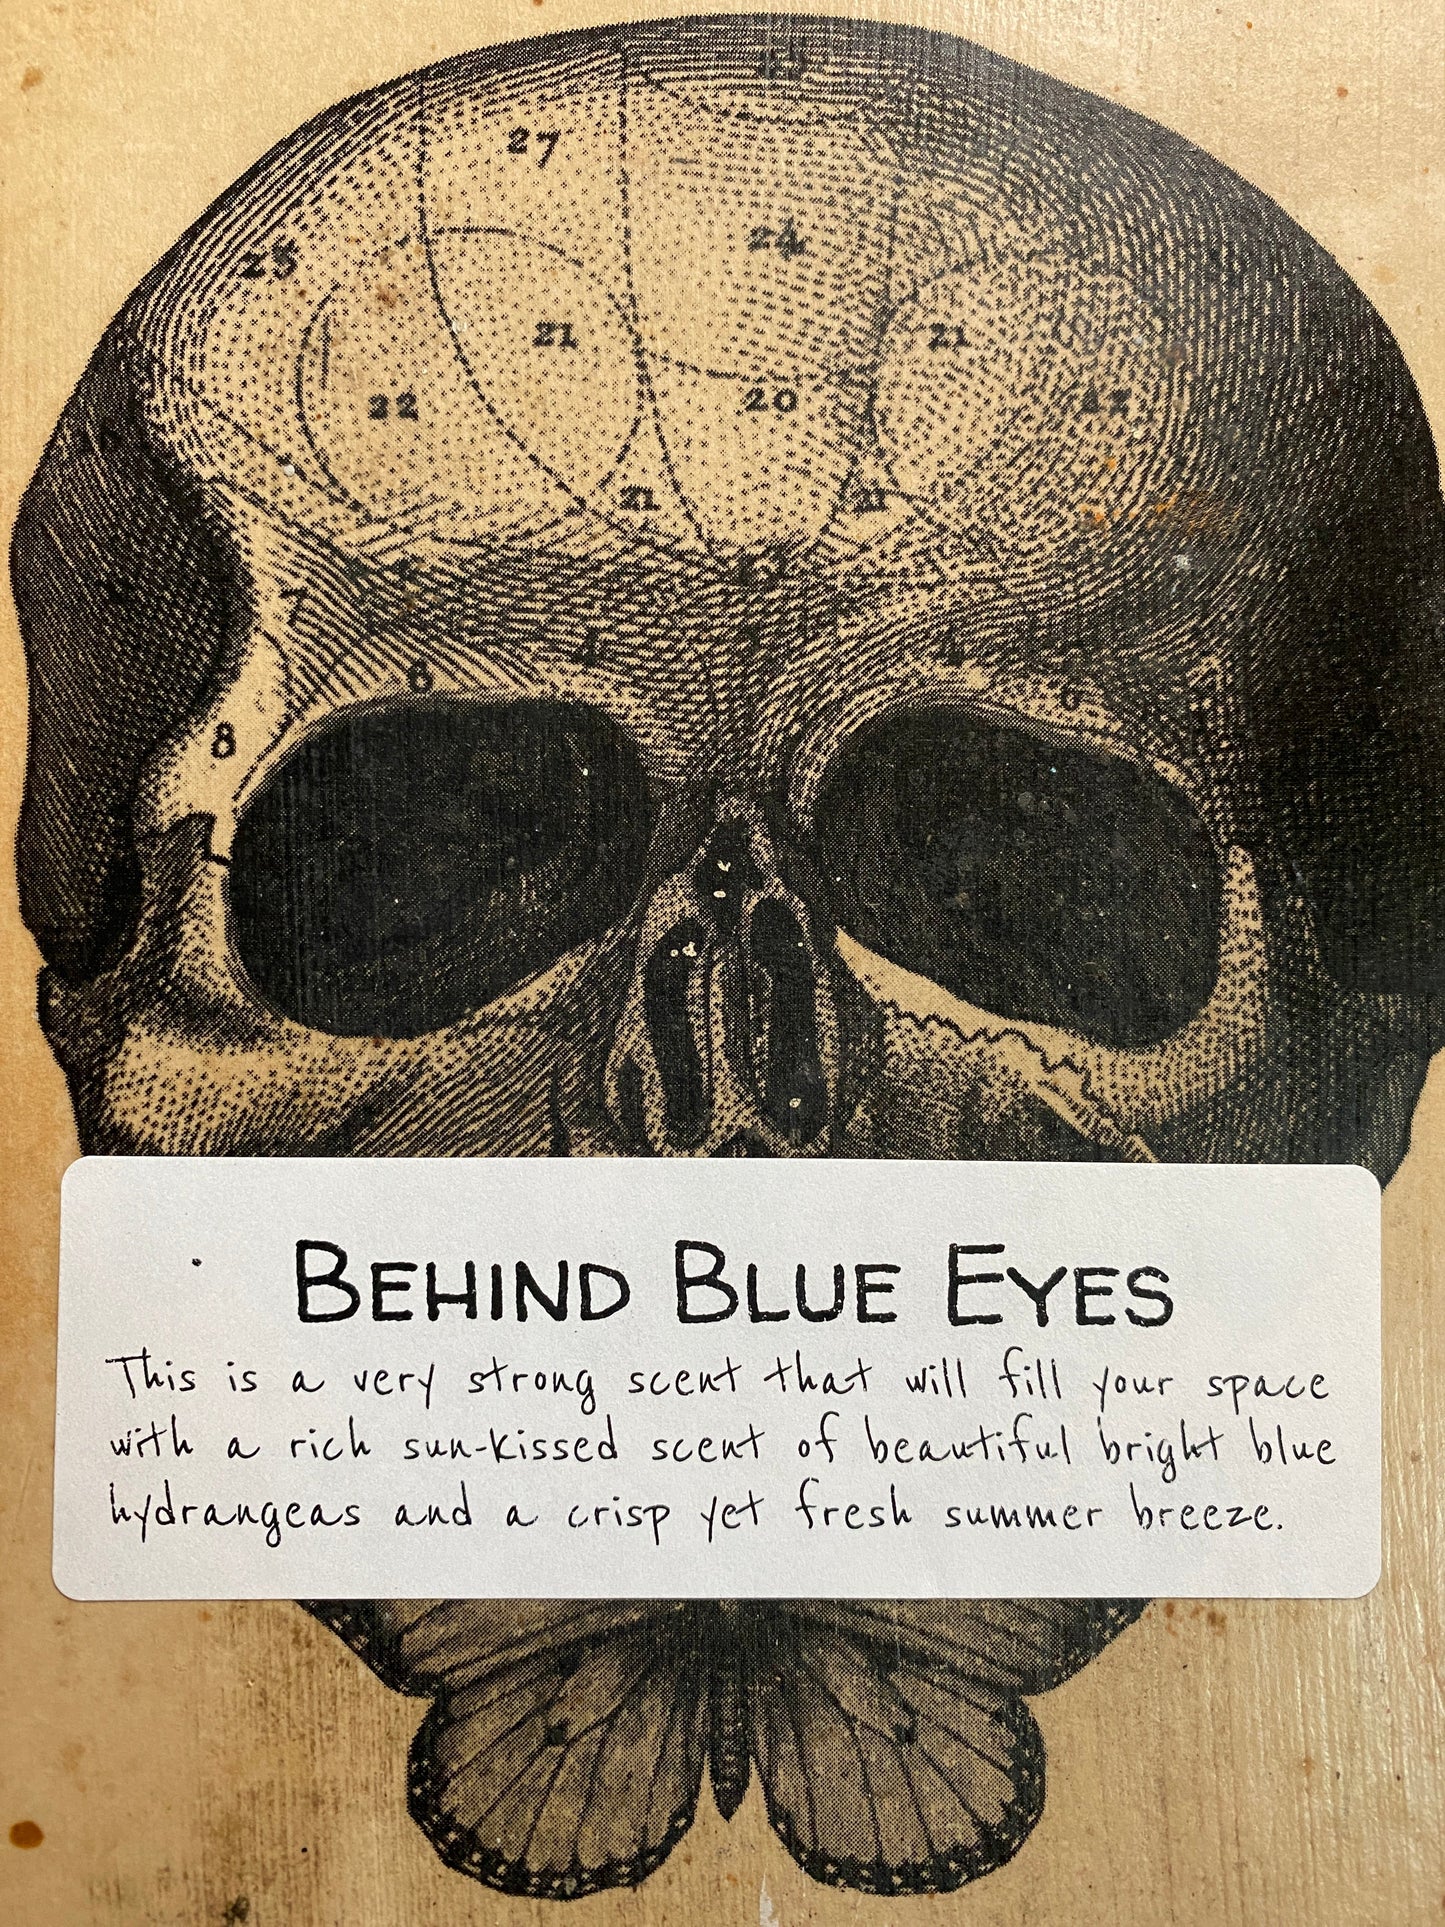 27
25
24
21
21
22
20
21
21
7
6
6
8
BEHIND BLUE EYES
This is a very strong scent that will fill your space
with a rich sun-kissed scent of beautiful bright blue
hydrangeas and a crisp yet fresh summer breeze.